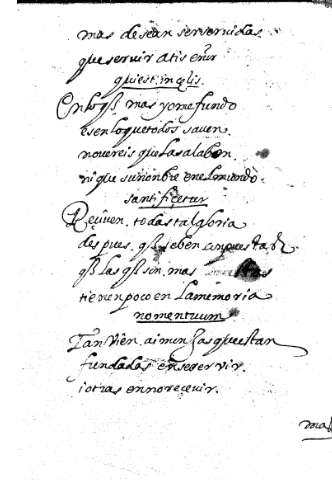 mas desean ser servidas
que servir a ti señor
qui est in çelis
En lo q̃ mas yo me fundo
es en lo que todos saven
no vereis que las alaben
ni que su nonbre en el mundo
santifiçetur
Reçiven todas tal gloria
despues q̃ se ben
q̃ las q̃ son mas
tienen poco en la memoria
nomen tuum
Tan vien ai monjas que estan
fundadas en ser ervir
i otras en no reçevir
mas